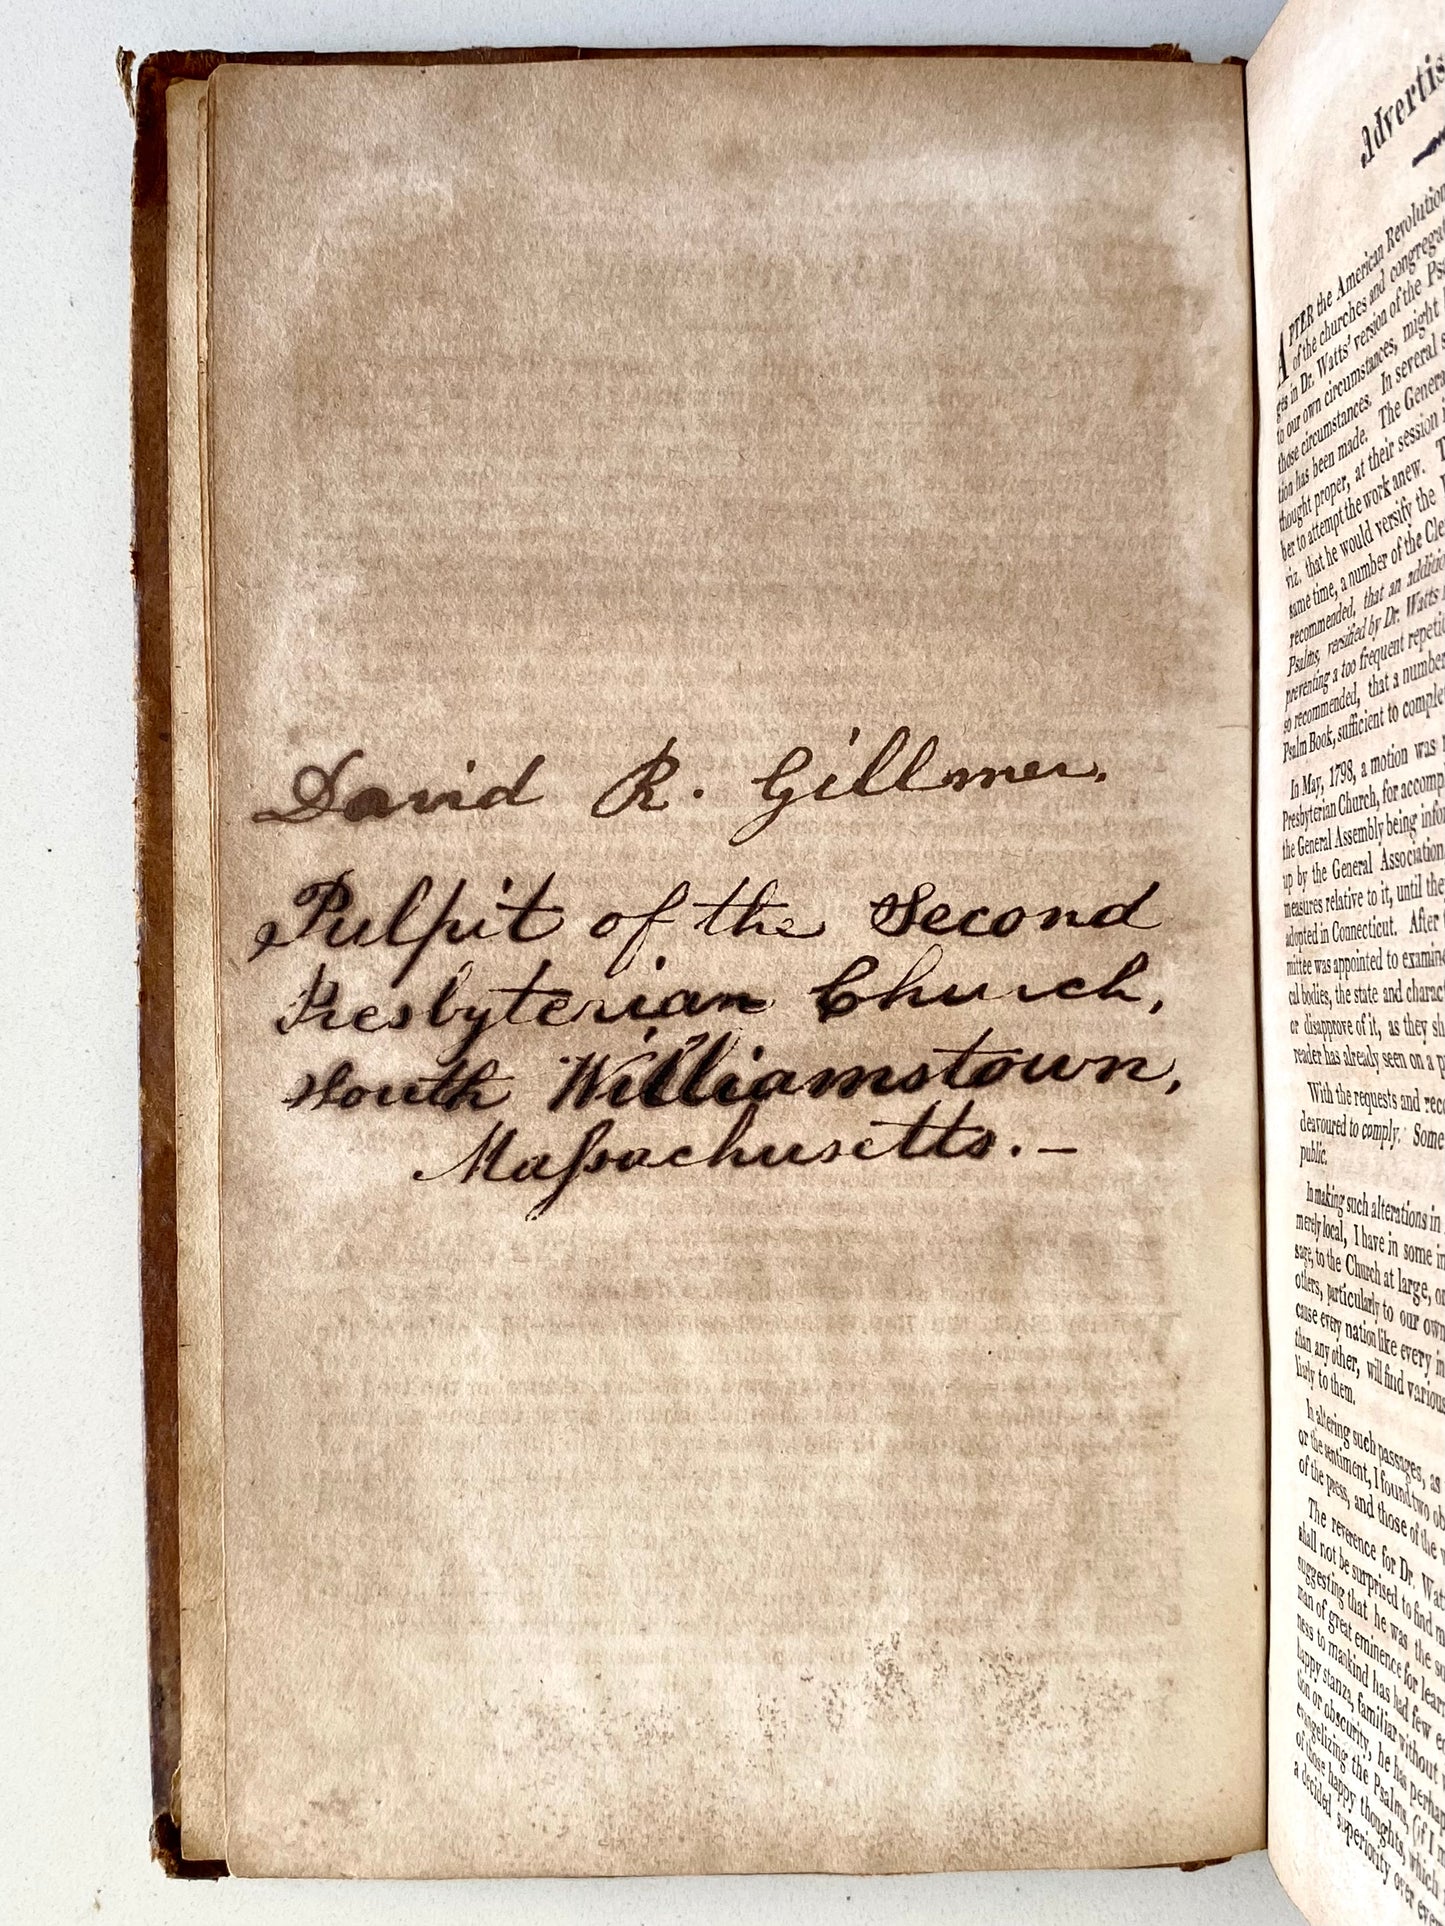 David R. Gillmer.
Pulpit of the Second
Presbyterian Church,
South Williamstown,
Massachusetts. –
Advertis
AFTER the American Revolution
of the churches and congregat
ges in Dr. Watts' version of the Psa
to our own circumstances, might
those circumstances. In several s
tion has been made. The Genera
thought proper, at their session
ber to attempt the work anew. T
viz. that he would versify the
same time, a number of the Cle
recommended, that an additio
Psalms, versified by Dr. Watts
preventing a too frequent repetit
so recommended, that a number
Psalm Book, sufficient to comple
In May, 1798, a motion was
Presbyterian Church, for accompl
the General Assembly being infor
up by the General Association
measures relative to it, until the
adopted in Connecticut. After
mittee was appointed to examin
cal bodies, the state and charact
or disapprove of it, as they sh
reader has already seen on a p
With the requests and reco
deavoured to comply. Some
public.
In making such alterations in
merely local, I have in some in
sage, to the Church at large, or
others, particularly to our own
cause every nation like every in
than any other, will find various
liarly to them.
In altering such passages, as
or the sentiment, I found two ob
of the press, and those of the
The reverence for Dr. Wat
shall not be surprised to find m
suggesting that he was the su
man of great eminence for learn
ness to mankind has had few e
happy stanza, familiar without
tion or obscurity, he has perhap
evangelizing the Psalms, (if I m
of those happy thoughts, which
a decided superiority over ever